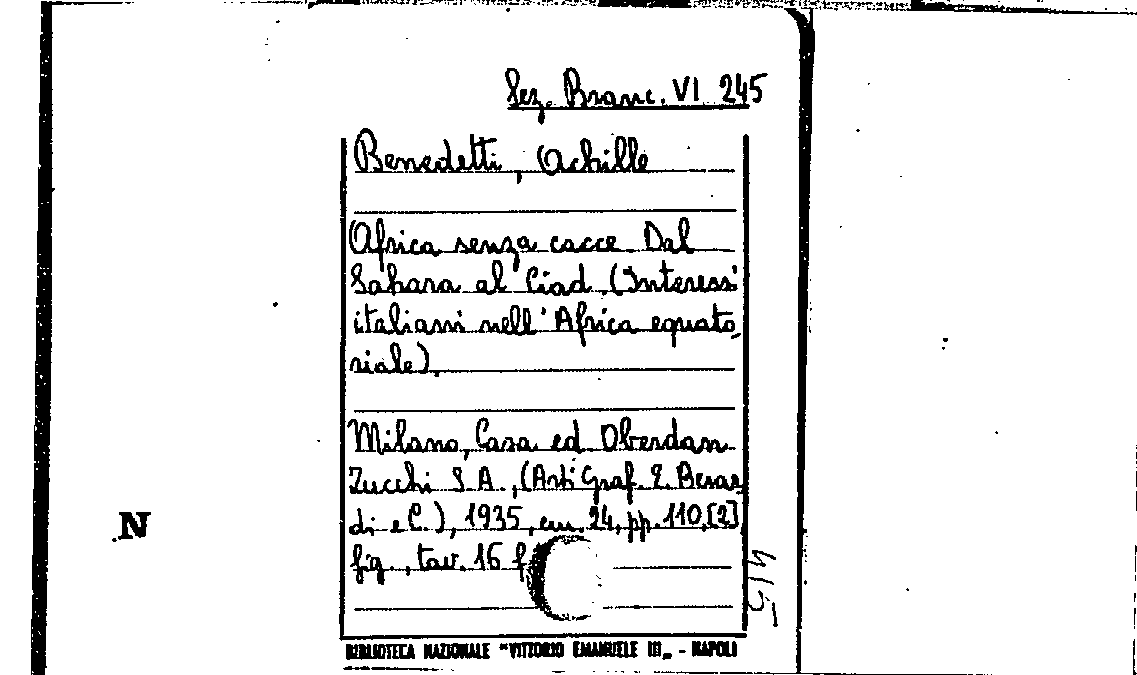 Sez. Branc. VI 245
Benedetti, Achille
Africa senza cacce Dal
Sahara al Ciad. (Interessi
italiani nell'Africa equato,
riale).
Milano, Casa ed Oberdan
Zucchi S.A., (Arti Graf. E. Berar,
di e C.), 1935, cm. 24, pp. 110, [2]
fig., tav. 16 f
415
N
BIBLIOTECA NAZIONALE "VITTORIO EMANUELE III„ - NAPOLI